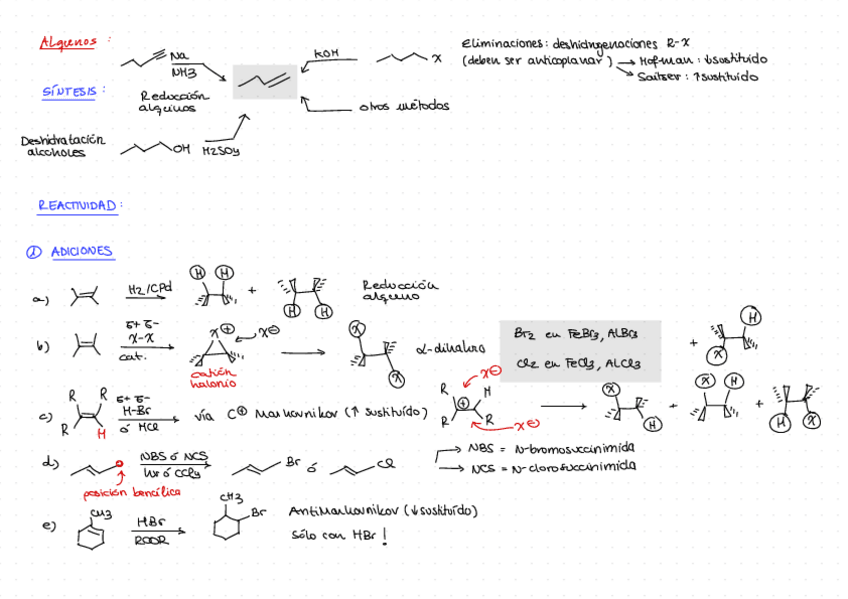 Alquenos :
Na
NH3
Reducción
alquinos
KOH
X
Eliminaciones: deshidrogenaciones R-X
(deben ser anticoplanar) → Hofman: ↓sustituído
→ Saitsev: ↑sustituído
SÍNTESIS :
otros métodos
Deshidratación
alcoholes
OH
H2SO4
REACTIVIDAD:
① ADICIONES
a)
H2/CPd
H H
+
H H
Reducción
alqueno
b)
δ+ δ-
X-X
cat.
X⊕
X⊖
catión
halonio
X
X
α-dihaluro
Br2 en FeBr3, AlBr3
Cl2 en FeCl3, AlCl3
+
H
X
c)
R R
R H
δ+ δ-
H-Br
ó HCl
vía C⊕ Markovnikov (↑ sustituído)
R H
R R
X⊖
X⊖
X
H
+
X H
+
H X
d)
NBS ó NCS
hν ó CCl4
Br ó
Cl
posición bencílica
NBS = N-bromosuccinimida
NCS = N-clorosuccinimida
e)
CH3
HBr
ROOR
CH3
Br
AntiMarkovnikov (↓sustituído)
Sólo con HBr !